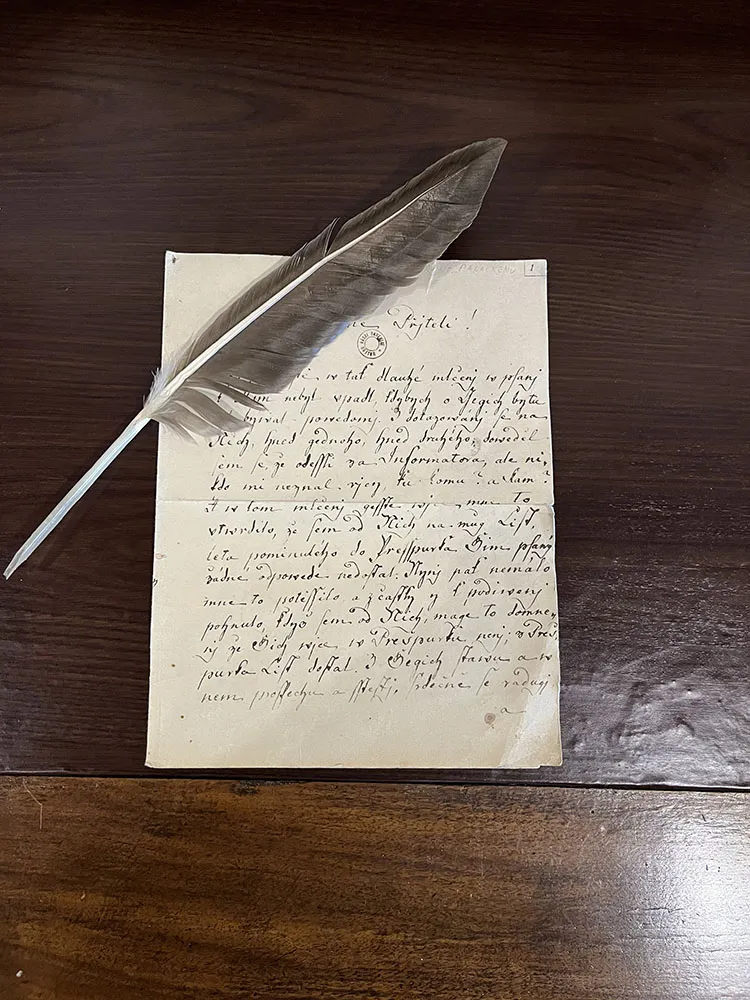 PALACKÉMU 1
Přjteli!
w tak dlauhé mlčenj w psanj
nebyl vpadl, kdybych o Gegich bytu
powědomj. Z dotazowánj se na
Nich, hned gednoho, hned druhého, dowěděl
sem se, že odessli za Informatora, ale ni,
kdo mi neznal rjcy, ku komu? a kam?
A w tom mlčenj gesstě wjce mne to
vtwrdilo, že sem od Nich na mug List,
léta pominulého do Presspurku Gim psaný
žádné odpowědě nedostal. Nynj pak nemálo
mne to potěssilo a částky y k podiwenj
pohnulo, když sem od Nich, mage to domně,
nj že Gich wjce w Prespurku nenj, z Preš,
purku List dostal. Z Gegich stawu a w
nem prospěchu a sstěstj, srdečně se radugi
a